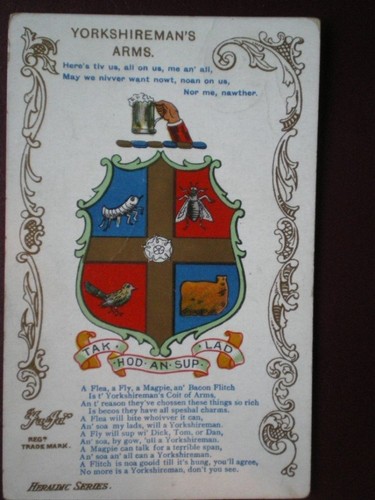 YORKSHIREMAN'S
ARMS.
Here's tiv us, all on us, me an' all,
May we nivver want nowt, noan on us,
Nor me, nawther.
TAK HOD AN SUP LAD
A Flea, a Fly, a Magpie, an' Bacon Flitch
Is t' Yorkshireman's Coit of Arms.
An t' reason they've chossen these things so rich
Is becos they have all speshal charms.
A Flea will bite whoivver it can,
An' soa my lads, will a Yorkshireman.
A Fly will sup wi' Dick, Tom, or Dan,
An' soa, by gow, 'ull a Yorkshireman.
A Magpie can talk for a terrible span,
An' soa an' all can a Yorkshireman.
A Flitch is noa gooid till it's hung, you'll agree,
No more is a Yorkshireman, don't you see.
REGD
TRADE MARK.
HERALDIC SERIES.